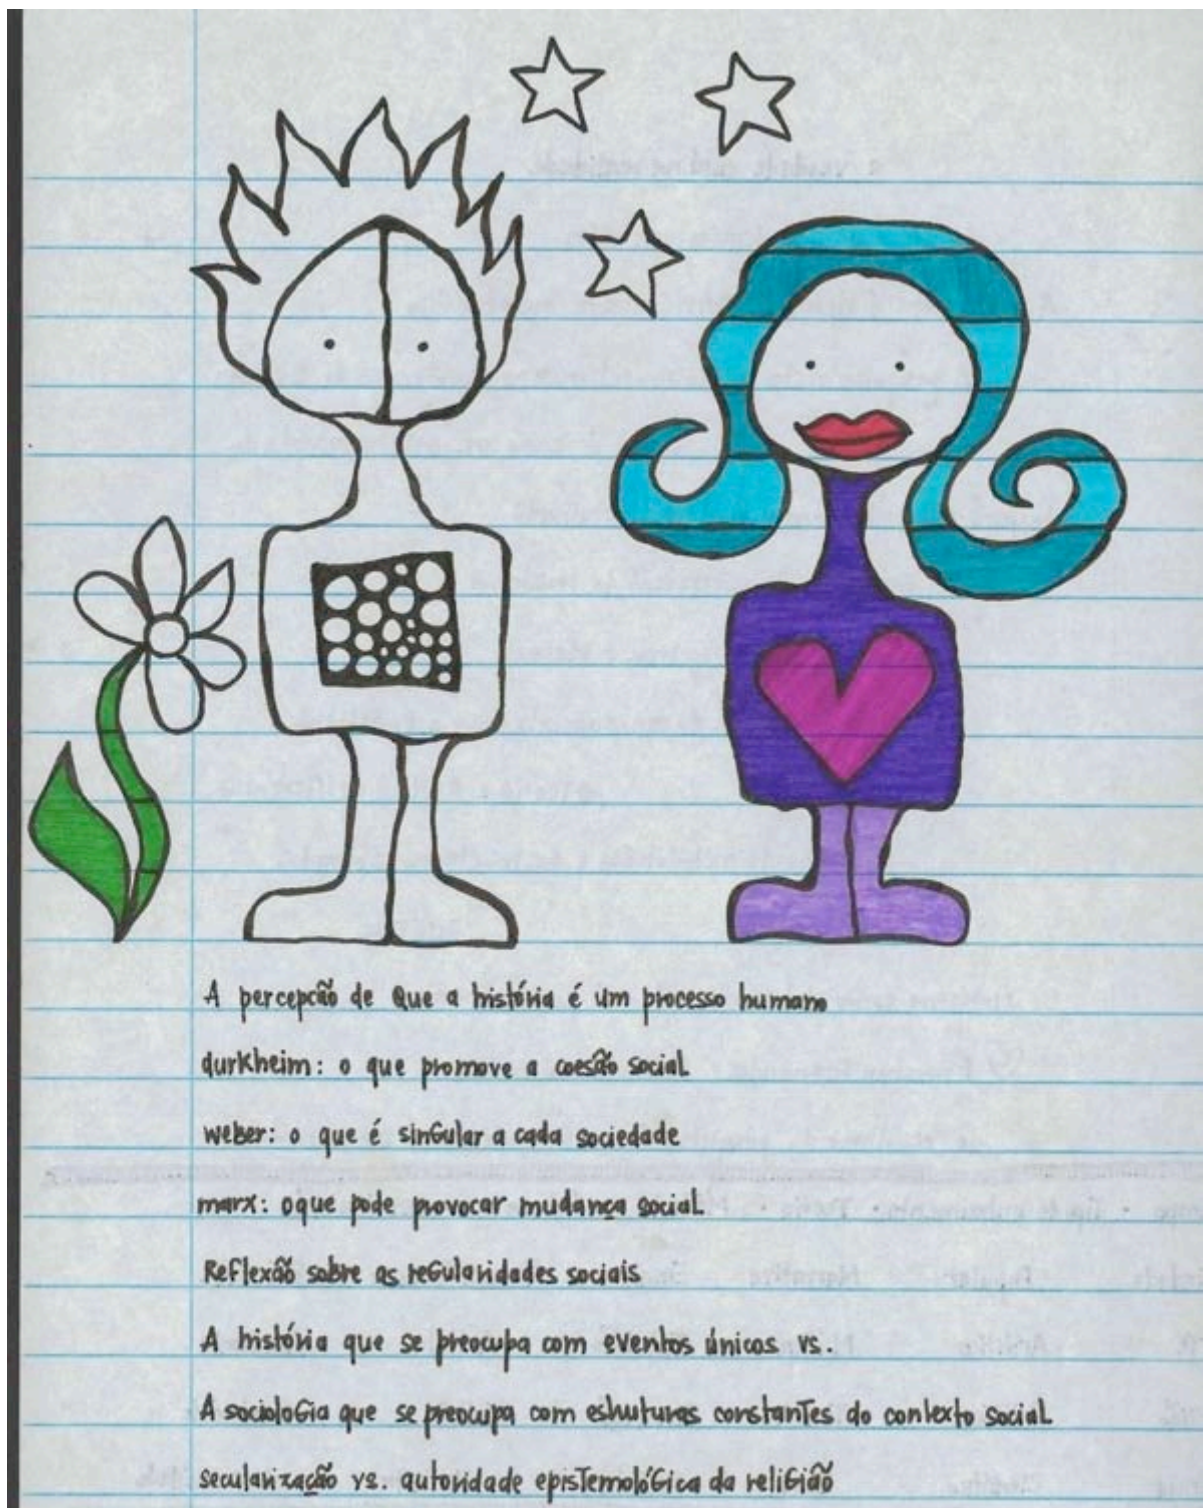 A percepção de Que a história é um processo humano
durkheim: o que promove a coesão social
weber: o que é sinGular a cada sociedade
marx: oque pode provocar mudança social
Reflexão sobre as reGularidades sociais
A história que se preocupa com eventos únicos vs.
A socioloGia que se preocupa com estruturas constantes do contexto social
secularização vs. autoridade epistemolóGica da reliGião